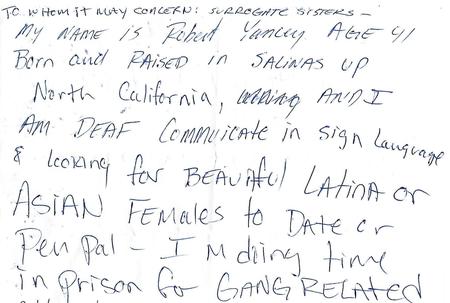 TO WHOM IT MAY CONCERN: SURROGATE SISTERS -
My NAME is Robert Yancy AGE 41
Born and RAISED in SALINAS UP
North California, AND I
AM DEAF Commuicate in sign language
& looking for BEAUtiful LATINA or
ASIAN FEMALES to DATE or
Pen pal - I M doing time
in prison for GANG RELATED